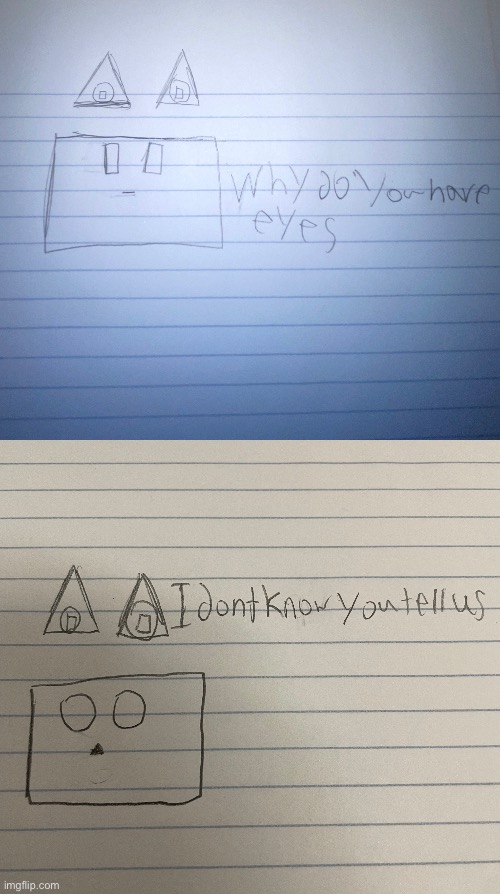 Why do you have
eyes
I dont know you tell us
imgflip.com